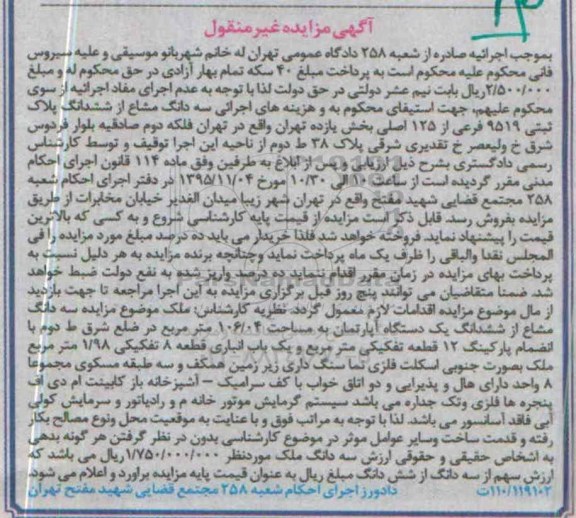 آگهی مزایده غیرمنقول
بموجب اجرائیه صادره از شعبه ۲۵۸ دادگاه عمومی تهران له خانم شهربانو موسیقی و علیه سیروس
فانی محکوم علیه محکوم است به پرداخت مبلغ ۴۰ سکه تمام بهار آزادی در حق محکوم له و مبلغ
۲/۵۰۰/۰۰۰ریال بابت نیم عشر دولتی در حق دولت لذا با توجه به عدم اجرای مفاد اجرائیه از سوی
محکوم علیهم، جهت استیفای محکوم به و هزینه های اجرائی سه دانگ مشاع از ششدانگ پلاک
ثبتی ۹۵۱۹ فرعی از ۱۲۵ اصلی بخش یازده تهران واقع در تهران فلکه دوم صادقیه بلوار فردوس
شرق خ ولیعصر خ تقدیری شرقی پلاک ۳۸ ط دوم از ناحیه این اجرا توقیف و توسط کارشناس
رسمی دادگستری بشرح ذیل ارزیابی و پس از ابلاغ به طرفین وفق ماده ۱۱۴ قانون اجرای احکام
مدنی مقرر گردیده است از ساعت ۱۰ الی ۱۰/۳۰ مورخ ۱۳۹۵/۱۱/۰۴ در دفتر اجرای احکام شعبه
۲۵۸ مجتمع قضایی شهید مفتح واقع در تهران شهر زیبا میدان الغدیر خیابان مخابرات از طریق
مزایده بفروش رسد. قابل ذکر است مزایده از قیمت پایه کارشناسی شروع و به کسی که بالاترین
قیمت را پیشنهاد نماید. فروخته خواهد شد فلذا خریدار می باید ده درصد مبلغ مورد مزایده را فی
المجلس نقدا والباقی را ظرف یک ماه پرداخت نماید وچنانچه برنده مزایده به هر دلیل نسبت به
پرداخت بهای مزایده در زمان مقرر اقدام ننماید ده درصد واریز شده به نفع دولت ضبط خواهد
شد. ضمنا متقاضیان می توانند پنج روز قبل برگزاری مزایده به این اجرا مراجعه تا جهت بازدید
از مال موضوع مزایده اقدامات لازم معمول گردد. نظریه کارشناس: ملک موضوع مزایده سه دانگ
مشاع از ششدانگ یک دستگاه آپارتمان به مساحت ۱۰۶/۰۴ متر مربع در ضلع شرق ط دوم با
انضمام پارکینگ ۱۲ قطعه تفکیکی متر مربع و یک باب انباری قطعه ۸ تفکیکی ۱/۹۸ متر مربع
ملک بصورت جنوبی اسکلت فلزی نما سنگ داری زیر زمین همکف و سه طبقه مسکونی مجموعا
۸ واحد دارای هال و پذیرایی و دو اتاق خواب با کف سرامیک – آشپزخانه باز کابینت ام دی اف
پنجره ها فلزی وتک جداره می باشد سیستم گرمایش موتور خانه م و رادیاتور و سرمایش کولر
آبی فاقد آسانسور می باشد. لذا با توجه به مراتب فوق و با عنایت به موقعیت محل ونوع مصالح بکار
رفته و قدمت ساخت وسایر عوامل موثر در موضوع کارشناسی بدون در نظر گرفتن هر گونه بدهی
به اشخاص حقیقی و حقوقی ارزش سه دانگ ملک موردنظر ۱/۷۵۰/۰۰۰/۰۰۰ریال می باشد که
ارزش سهم از سه دانگ از شش دانگ مبلغ ریال به عنوان قیمت پایه مزایده برآورد و اعلام می شود.
۱۱۰/۱۱۹۱۰۲ت دادورز اجرای احکام شعبه ۲۵۸ مجتمع قضایی شهید مفتح تهران